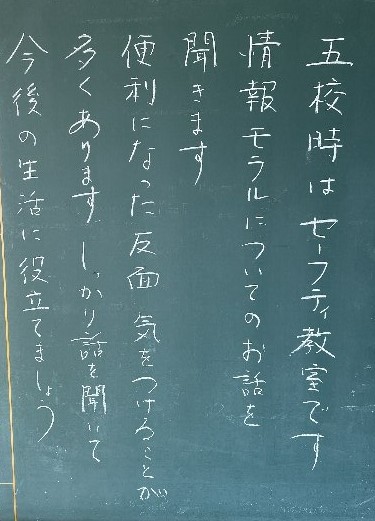 五校時はセーフティ教室です
情報モラルについてのお話を
聞きます
便利になった反面 気をつけることが
多くあります しっかり話を聞いて
今後の生活に役立てましょう